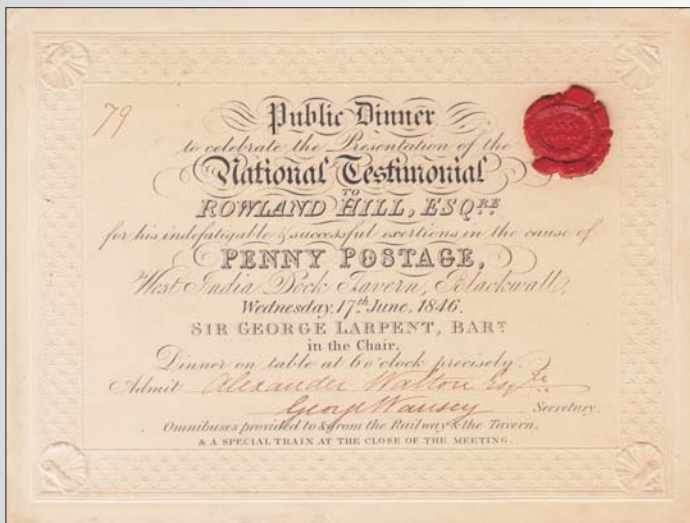 79
Public Dinner
to celebrate the Presentation of the
National Testimonial
TO
ROWLAND HILL, ESQRE
for his indefatigable & successful exertions in the cause of
PENNY POSTAGE,
West India Dock Tavern, Blackwall,
Wednesday, 17th June, 1846.
SIR GEORGE LARPENT, BART
in the Chair.
Dinner on table at 6 o'clock precisely.
Admit Alexander Walton Esqre
George Wansey Secretary.
Omnibuses provided to & from the Railway & the Tavern,
& A SPECIAL TRAIN AT THE CLOSE OF THE MEETING.